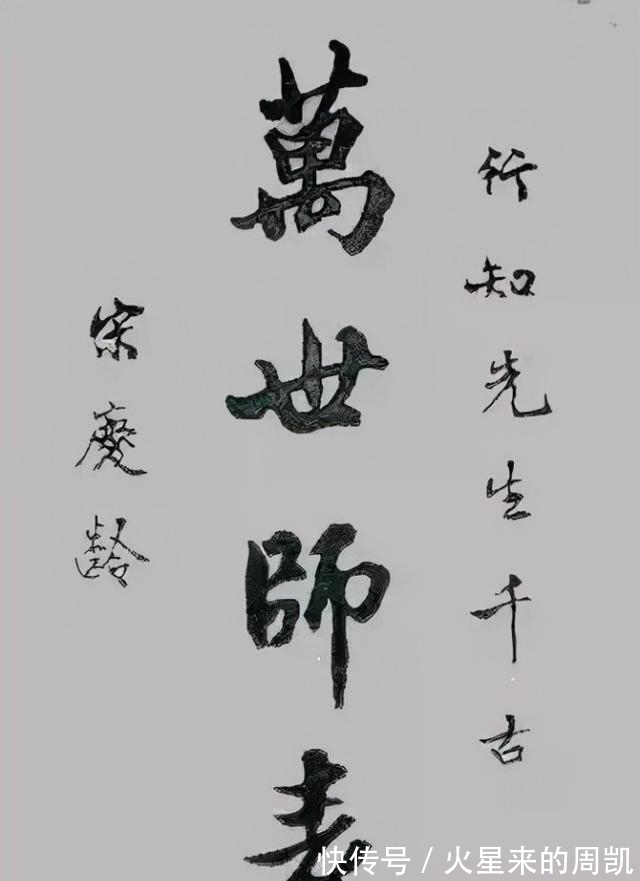 行知先生千古
萬世師表
宋慶齡
快传号/火星来的周凯